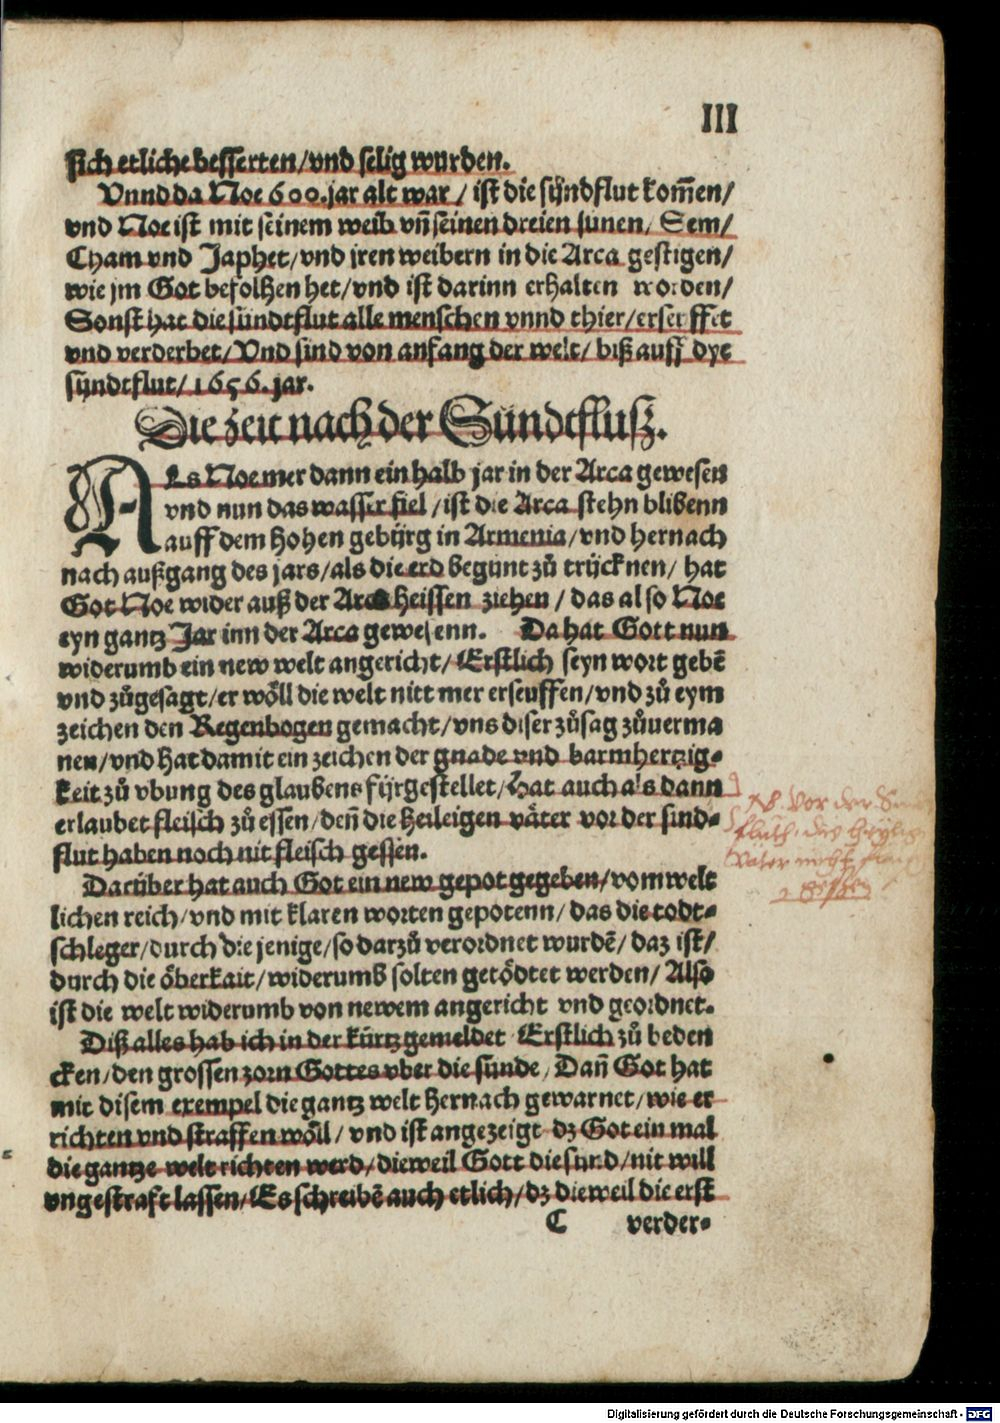 III
sich etliche besserten/vnd selig wurden.
Vnnd da Noe 600. jar alt war / ist die sündflut kom̄en/
vnd Noe ist mit seinem weib vn̄ seinen dreien sunen/ Sem/
Cham vnd Japhet/vnd jren weibern in die Arca gestigen/
wie jm Got befolhen het/vnd ist darinn erhalten worden/
Sonst hat die sündtflut alle menschen vnnd thier/erseuffet
vnd verderbet/Vnd sind von anfang der welt/ biß auff dye
sündtflut/1656. jar.
Die zeit nach der Sündtfluß.
Als Noe mer dann ein halb jar in der Arca gewesen
vnd nun das wasser fiel /ist die Arca stehn blibenn
auff dem hohen gebürg in Armenia/vnd hernach
nach außgang des jars/als die erd begunt zů trücknen/ hat
Got Noe wider auß der Arca heissen ziehen / das also Noe
eyn gantz Jar inn der Arca gewesenn. Da hat Gott nun
widerumb ein new welt angericht/ Erstlich seyn wort gebē
vnd zůgesagt/er wöll die welt nitt mer erseuffen/vnd zů eym
zeichen den Regenbogen gemacht/vns diser zůsag zůuerma
nen/vnd hat damit ein zeichen der gnade vnd barmhertzig-
keit zů vbung des glaubens fürgestellet/hat auch als dann
erlaubet fleisch zů essen/den̄ die heileigen väter vor der sind-
flut haben noch nit fleisch gessen.
NB. Vor der Sünd
fluth die heylig
Väter nicht fleisch
gessen
Darüber hat auch Got ein new gepot gegeben/vom welt
lichen reich/vnd mit klaren worten gepotenn/das die todt-
schleger/durch die jenige/so darzů verordnet wurdē/ daz ist/
durch die öberkait/widerumb solten getödtet werden/ Also
ist die welt widerumb von newem angericht vnd geordnet.
Diß alles hab ich in der kürtz gemeldet Erstlich zů beden
cken/den grossen zorn Gottes vber die sünde/ Dan̄ Got hat
mit disem exempel die gantz welt hernach gewarnet/wie er
richten vnd straffen wöll/ vnd ist angezeigt dz Got ein mal
die gantze welt richten werd/dieweil Gott die sund/nit will
vngestraft lassen/Es schreibē auch etlich/dz dieweil die erst
C verder-
Digitalisierung gefördert durch die Deutsche Forschungsgemeinschaft - DFG